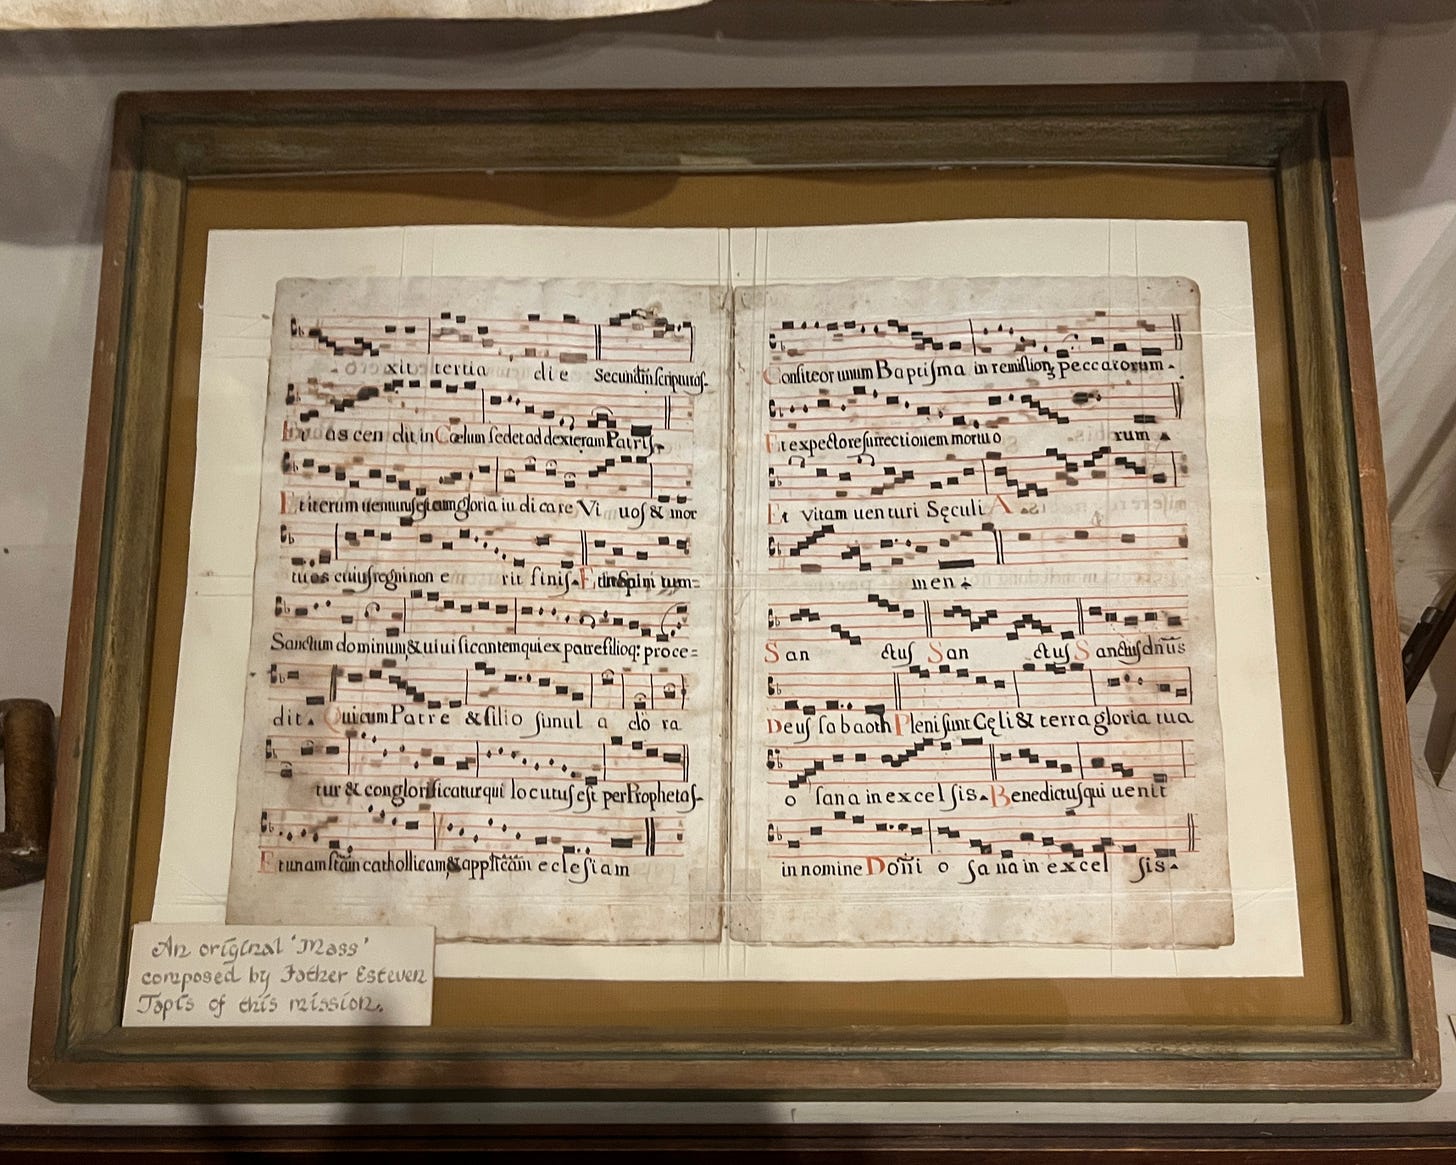 xit tertia die Secundũ scripturas.
Et ascendit, in Cœlum sedet ad dexteram Patris.
Et iterum uenturus est cum gloria iu di care Vi uos & mor
tuos cuius regni non e rit finis. Et in Spiri tum=
Sanctum dominum & uiui ficantem qui ex patre filioq; proce=
dit. Qui cum Patre & filio simul a do ra
tur & conglorificatur qui locutus est per Prophetas.
Et unam ctam catholicam & applicãm eclesiam
Confiteor unum Baptisma in remissionẽ peccatorum.
Et expecto resurrectionem mortuo rum
Et Vitam uenturi Sęculi A
men.
San ctus San ctus Sanctus dñus
Deus sabaoth Pleni sunt Cęli & terra gloria tua
o sana in excel sis. Benedictus qui uenit
in nomine Domi o sa na in excel sis.
An original 'Mass'
composed by Father Esteven
Tapis of this mission.